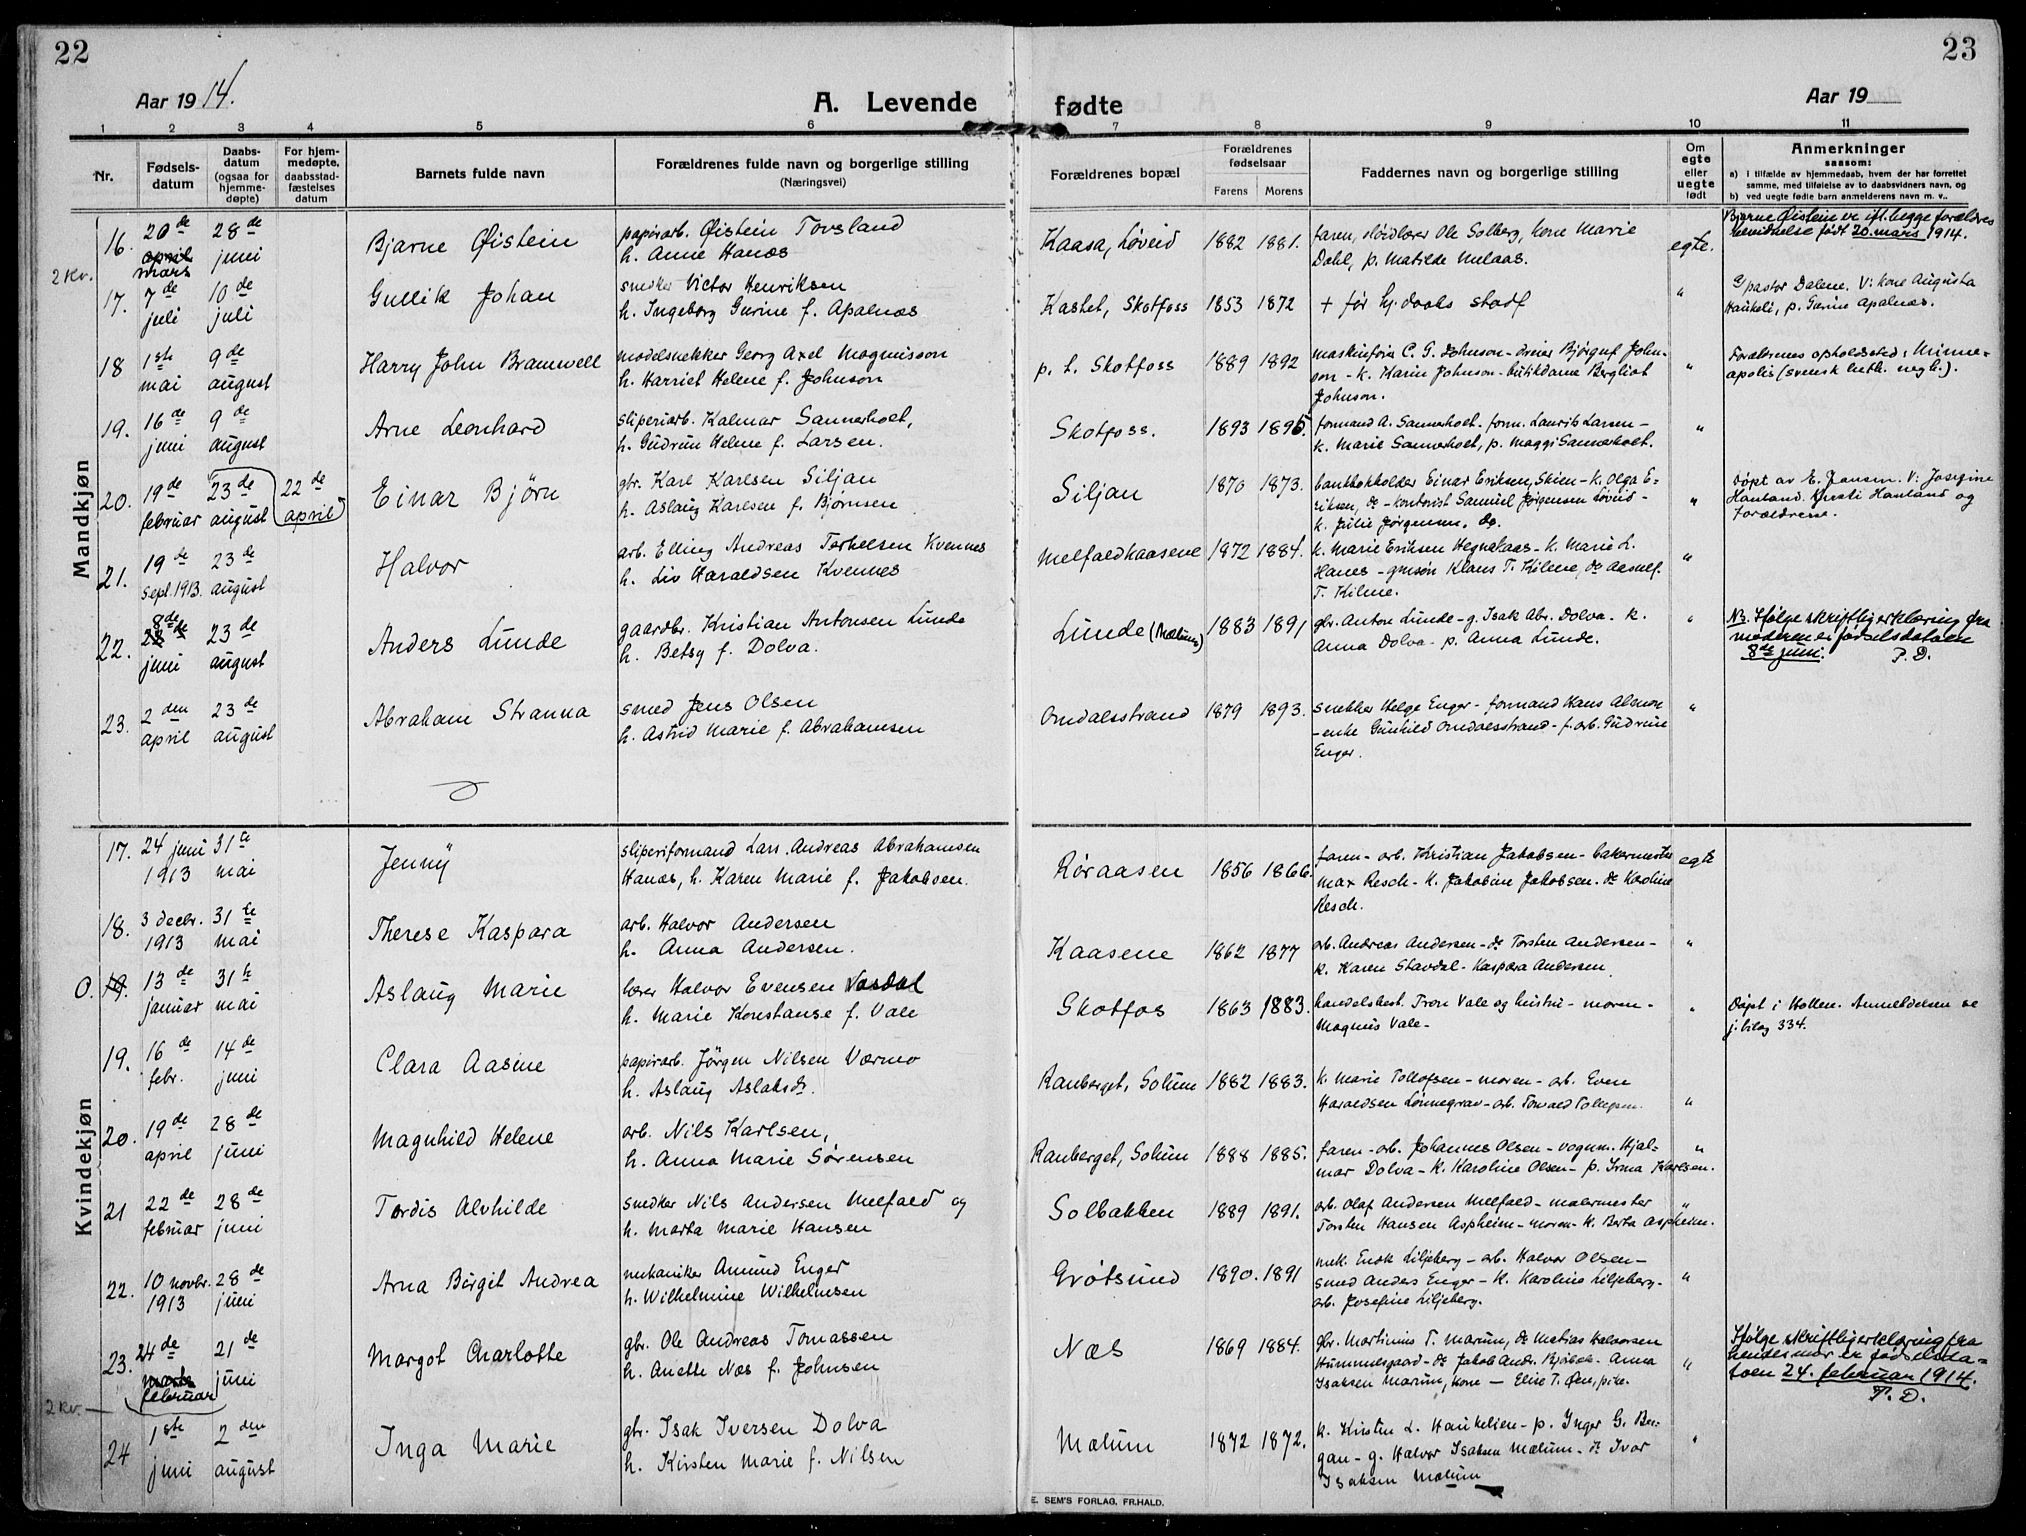 22
23
Aar 1914.
A. Levende fødte
Aar 19
1 2 3 4 5 6 7 8 9 10 11
Nr.
Fødsels-
datum
Daabs-
datum
(ogsaa for
hjemme-
døpte)
For hjem-
medøpte,
daabsstad-
fæstelses
datum
Barnets fulde navn
Forældrenes fulde navn og borgerlige stilling
(Næringsvei)
Forældrenes bopæl
Forældrenes
fødselsaar
Farens Morens
Faddernes navn og borgerlige stilling
Om
egte
eller
uegte
født
Anmerkninger
saasom:
a) i tilfælde av hjemmedaab, hvem der har forrettet
samme, med tilføielse av to daabsvidners navn, og
b) ved uegte fødte barn anmelderens navn m. v..
Mandkjøn
16.
20de
april
mars
28de
juni
Bjarne Øistein
papirarb. Øistein Torsland
h. Anne Hanæs
Kaasa, Løveid
1882 1881.
faren, Ole Solberg, kone Marie
Dahl, p. Matilde
egte.
Bjarne Øistein er ifl. begge forældres
bevidnelse født 20. mars 1914.
2 Kv.
17.
7de
juli
10de
juli
Gullik Johan
snedker Victor Henriksen
h. Ingeborg Gurine f. Apalnæs
Kastet, Skotfoss
1853 1872
+ før hj.daabs stadf
"
pastor Dalene. V: kone Augusta
Haukeli, p. Gurine Apalnæs.
18
1ste
mai
9de
august
Harry John Bramwell
modelsnekker Georg Axel Magnusson
h. Harriet Helene f. Johnson
p. t. Skotfoss
1889 1892
maskinfører C. G. Johnson - dreier Bjørguf John-
son - k. Karin Johnson - butikdame Bergliot
Johnson.
"
Forældrenes opholdsted: Minne-
apolis (svensk luth. negh.).
19.
16de
juni
9de
august
Arne Leonhard
sliperiarb. Kalmar Sannerholt,
h. Gudrun Helene f. Larsen.
Skotfoss.
1893 1895.
formand A. Sannerholt. form. Laurits Larsen -
k. Marie Sannerholt, p. Maggi Sannerholt.
"
20.
19de
februar
23de
august
22de
april
Einar Bjørn
gbr. Karl Karlsen Siljan
h. Aslaug Karlsen f. Bjørnsen
Siljan
1870 1873.
bankbokholder Einar Eriksen, Skien - k. Olga E-
riksen, do - kontorist Samuel Jørgensen Løveid -
k. Julie Jørgensen, do.
"
Døpt av E. Jensen. V: Josefine
Hanland. Kristi Hanland og
forældrene.
21.
19de
sept. 1913.
23de
august
Halvor
arb. Elling Andreas Torkelsen Kvennes
h. Liv Haraldsen Kvennes
Melfaldkaasene
1872 1884.
k. Marie Eriksen Hegnakaas - k. Marie L.
Hanes - gmsøn Klaus T. Kilene, do Aasulf
T. Kilene.
"
22.
8de
28de
juni
23de
august
Anders Lunde
gaardbr. Kristian Antonsen Lunde
h. Betsy f. Dolva.
Lunde (Mælum)
1883 1891
gbr. Anton Lunde - g. Isak Abr. Dolva. k.
Anna Dolva - p. Anna Lunde.
"
NB. Ifølge skriftlig erklæring fra
moderen er fødselsdatoen
8de juni. P. D.
23.
2den
april
23de
august
Abraham Stranna
smed Jens Olsen
h. Astrid Marie f. Abrahamsen
Omdalsstrand
1879 1893.
snekker Helge Enger - formand Hans
- enke Gunhild Omdalsstrand - f. arb. Gudrun
Enger.
"
Kvindekjøn
17.
24 juni
1913
31te
mai
Jenny
sliperiformand Lars Andreas Abrahamsen
Hanæs, h. Karen Marie f. Jakobsen.
Røraasen
1856 1866.
faren - arb. Kristian Jakobsen - bakermester
Max Resch - k. Jakobine Jakobsen. do Karoline
Resch.
egte
18.
3 decbr.
1913
31te
mai
Therese Kaspara
arb. Halvor Andersen
h. Anna Andersen.
Kaasene
1862 1877
arb. Andreas Andersen - do Torsten Andersen -
k. Karen Stavdal - Kaspara Andersen
"
0. 19.
13de
januar
31te
mai
Aslaug Marie
lærer Halvor Evensen Vasdal
h. Marie Konstanse f. Vale
Skotfos
1863 1883.
handelsbest. Iver Vale og hustru - moren -
Magnus Vale -
"
Døpt i Hollen. Anmeldelsen se
j. bilag 334.
19.
16de
febr.
14de
juni
Clara Aasine
papirarb. Jørgen Nilsen Værmo
h. Aslaug Aslaksdt.
Ranberget, Solum
1882 1883.
k. Marie Tollofsen - moren - arb. Even
Haraldsen Lønnegrav - arb. Torvald Tollefsen.
"
20.
19de
april
28de
juni
Magnhild Helene
arb. Nils Karlsen,
h. Anna Marie Sørensen
Ranberget, Solum
1888 1885.
faren - arb. Johannes Olsen - vognm. Hjal-
mar Dolva - k. Karoline Olsen - p. Irma Karlsen.
"
21
22de
februar
28de
juni
Tordis Alvhilde
snedker Nils Andersen Melfald og
h. Marta Marie Hansen
Solbakken
1889 1891.
arb. Olaf Andersen Melfald - malermester
Torsten Hansen Aspheim - moren - k. Berta Aspheim.
"
22.
10 novbr.
1913
28de
juni
Arna Birgit Andrea
mekaniker Amund Enger
h. Wilhelmine Wilhelmsen
Grøtsund
1890. 1891
mek. Enok Liljeberg - arb. Halvor Olsen -
smed Anders Enger - k. Karoline Liljeberg -
arb. Josefine Liljeberg.
"
23.
24de
marts
februar
21de
juni
Margot Charlotte
gbr. Ole Andreas Tomassen
h. Anette Næs f. Johnsen
Næs
1869 1884.
gbr. Martinius T. Mærum, do Matias Halvorsen
Hummelgaard - do Jakob Andr. Bjøbæk. Anna
Isaksen Mærum, kone - Elise T. Øen, pike.
"
Ifølge skriftlig erklæring fra
hendes mor er fødselsda-
toen 24. februar 1914.
P. D.
2 Kv.
24
1ste
juni
2den
august
Inga Marie
gbr. Isak Iversen Dolva
h. Kirsten Marie f. Nilsen
Mælum
1872 1872.
k. Kirsten L. Haukelien - p. Inger G. Ber-
gan - g. Halvor Isaksen Mælum - do Ivar
Isaksen Mælum
"
E. SEM'S FORLAG, FR.HALD.